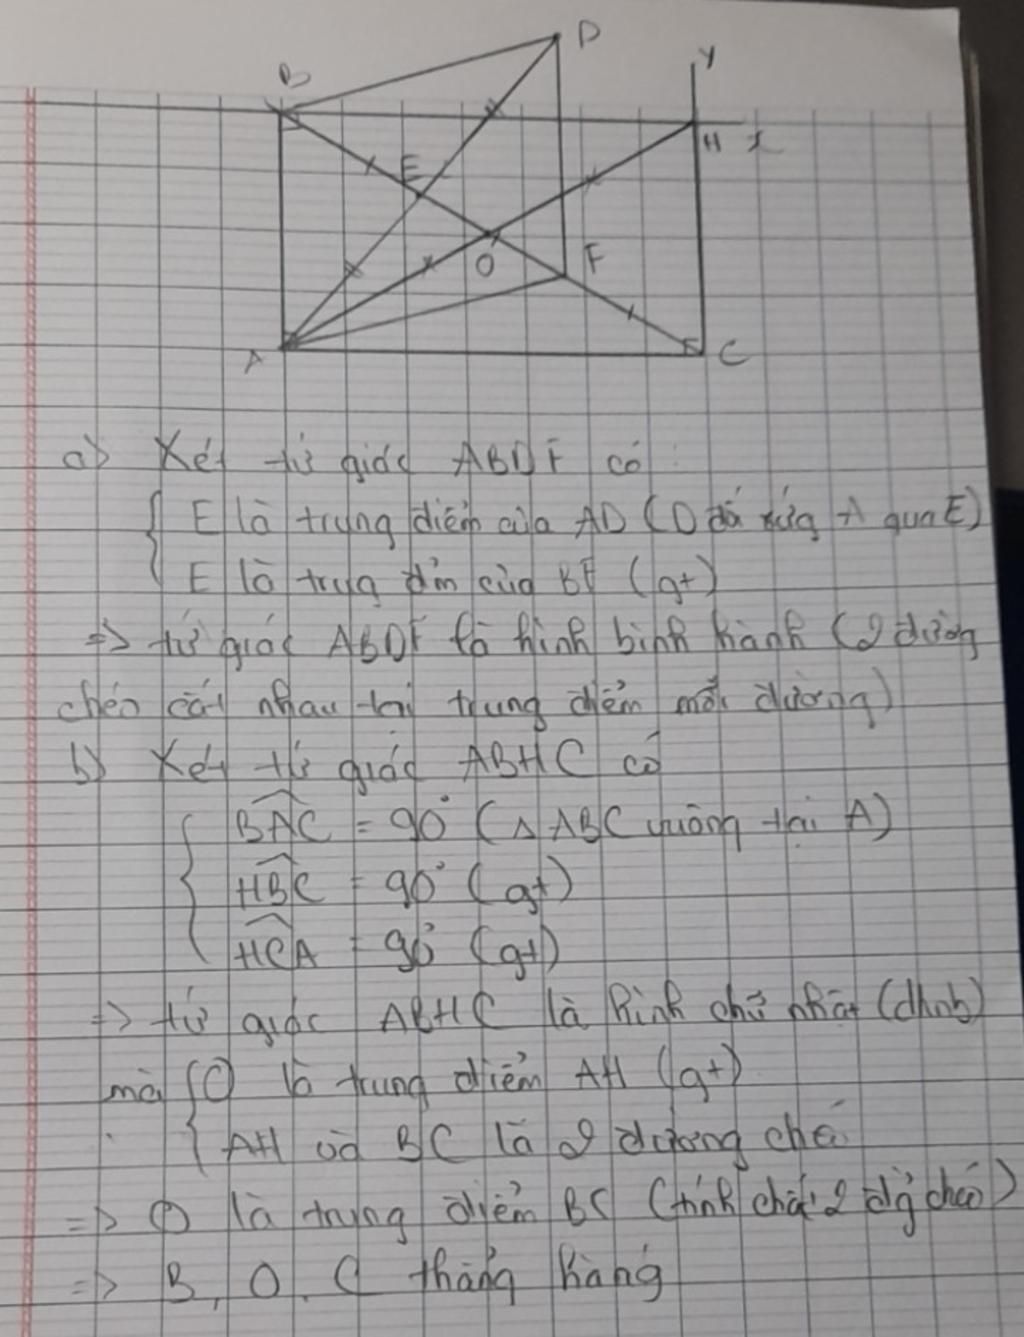 B
D
Y
E
H x
O
F
A
C
a) Xét tứ giác ABDF có:
E là trung điểm của AD (D đối xứng A qua E)
E là trung điểm của BF (gt)
=> tứ giác ABDF là hình bình hành (2 đường
chéo cắt nhau tại trung điểm mỗi đường)
b) Xét tứ giác ABHC có
BAC = 90° (△ABC vuông tại A)
HBC = 90° (gt)
HCA = 90° (gt)
=> tứ giác ABHC là hình chữ nhật (dhnb)
mà O là trung điểm AH (gt)
AH và BC là 2 đường chéo
=> O là trung điểm BC (tính chất 2 đg chéo)
=> B, O, C thẳng hàng